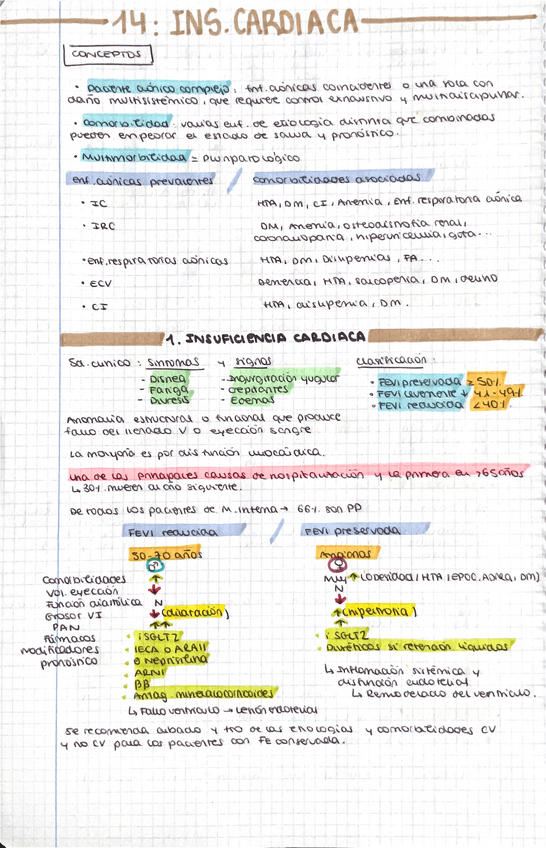 14: INS. CARDIACA
CONCEPTOS
• Paciente crónico complejo: Enf. crónicas coincidentes o una sola con
daño multisistémico, que requiere control exhaustivo y multidisciplinar.
• Comorbilidad: varias enf. de etiología distinta que combinadas
pueden empeorar el estado de salud y pronóstico.
• Multimorbilidad = pluripatológico
Enf. crónicas prevalentes / comorbilidades asociadas
• IC HTA, DM, CI, Anemia, Enf. respiratoria crónica
• IRC DM, Anemia, osteodistrofia renal,
coronariopatía, hiperuricemia, gota...
• enf. respiratorias crónicas HTA, DM, Dislipemias, FA...
• ECV Demencia, HTA, sarcopenia, DM, delirio
• CI HTA, dislipemia, DM.
1. INSUFICIENCIA CARDIACA
Sd. clínico: síntomas y signos Clasificación:
- Disnea - Ingurgitación yugular • FEVI preservada ≥50%
- Fatiga - crepitantes • FEVI levemente ↓ 41-49%
- Diuresis - Edemas • FEVI reducida <40%
Anomalía estructural o funcional que produce
fallo del llenado V o eyección sangre
La mayoría es por disfunción miocárdica.
una de las principales causas de hospitalización y la primera en >65 años
↳ 30% mueren al año siguiente.
De todos los pacientes de M. interna → 66% son PP
FEVI reducida / FEVI preservada
50-70 años Ancianas
♂ ♀
Comorbilidades ↑ Muy ↑ (obesidad, HTA, EPOC, ADREA, DM)
Vol. eyección ↓ N
Función diastólica N ↓
Grosor VI ↓ (dilatación) ↑ (hipertrofia)
PAN ↑↑ ↑
Fármacos modificadores pronóstico
• iSGLT2 • iSGLT2
• IECA o ARAII • Diuréticos si retención líquidos
o Neprisilina
• ARNI ↳ Inflamación sistémica y
disfunción endotelial
• BB ↳ Remodelado del ventrículo.
• Antag. mineralocorticoides
↳ Fallo ventrículo → Lesión endotelial
se recomienda cribado y tto de las etiologías y comorbilidades CV
y no CV para los pacientes con FE conservada.